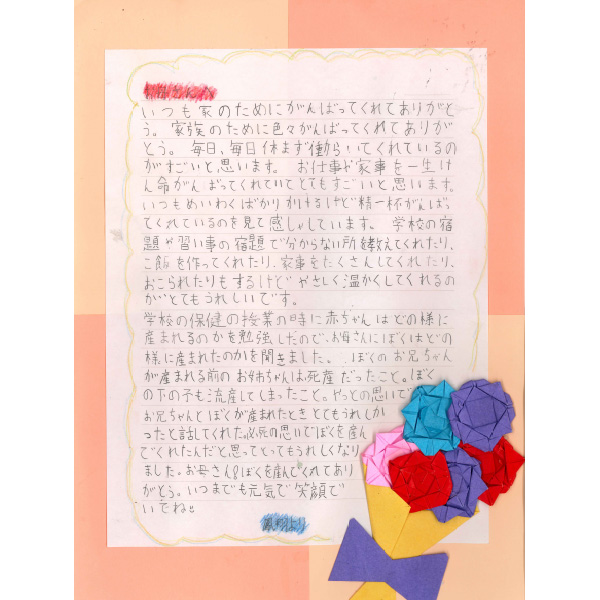 いつも家のためにがんばってくれてありがと
う。家族のために色々がんばってくれてありが
とう。毎日、毎日休まず働らいてくれているの
がすごいと思います。お仕事や家事を一生け
ん命がんばってくれていてとてもすごいと思います。
いつもめいわくばかりかけるけど精一杯がんばっ
てくれているのを見て感しゃしています。学校の宿
題や習い事の宿題で分からない所を教えてくれたり、
ご飯を作ってくれたり、家事をたくさんしてくれたり、
おこられたりもするけどやさしく温かくしてくれるの
がとてもうれしいです。
学校の保健の授業の時に赤ちゃんはどの様に
産まれるのかを勉強したので、お母さんにぼくはどの
様に産まれたのかを聞きました。ぼくのお兄ちゃん
が産まれる前のお姉ちゃんは、死産だったこと。ぼく
の下の子も流産してしまったこと。やっとの思いで
お兄ちゃんとぼくが産まれたときとてもうれしか
ったと話してくれた。必死の思いでぼくを産ん
でくれたんだと思ってとってもうれしくなり
ました。お母さんぼくを産んでくれてあり
がとう。いつまでも元気で笑顔で
いてね
より